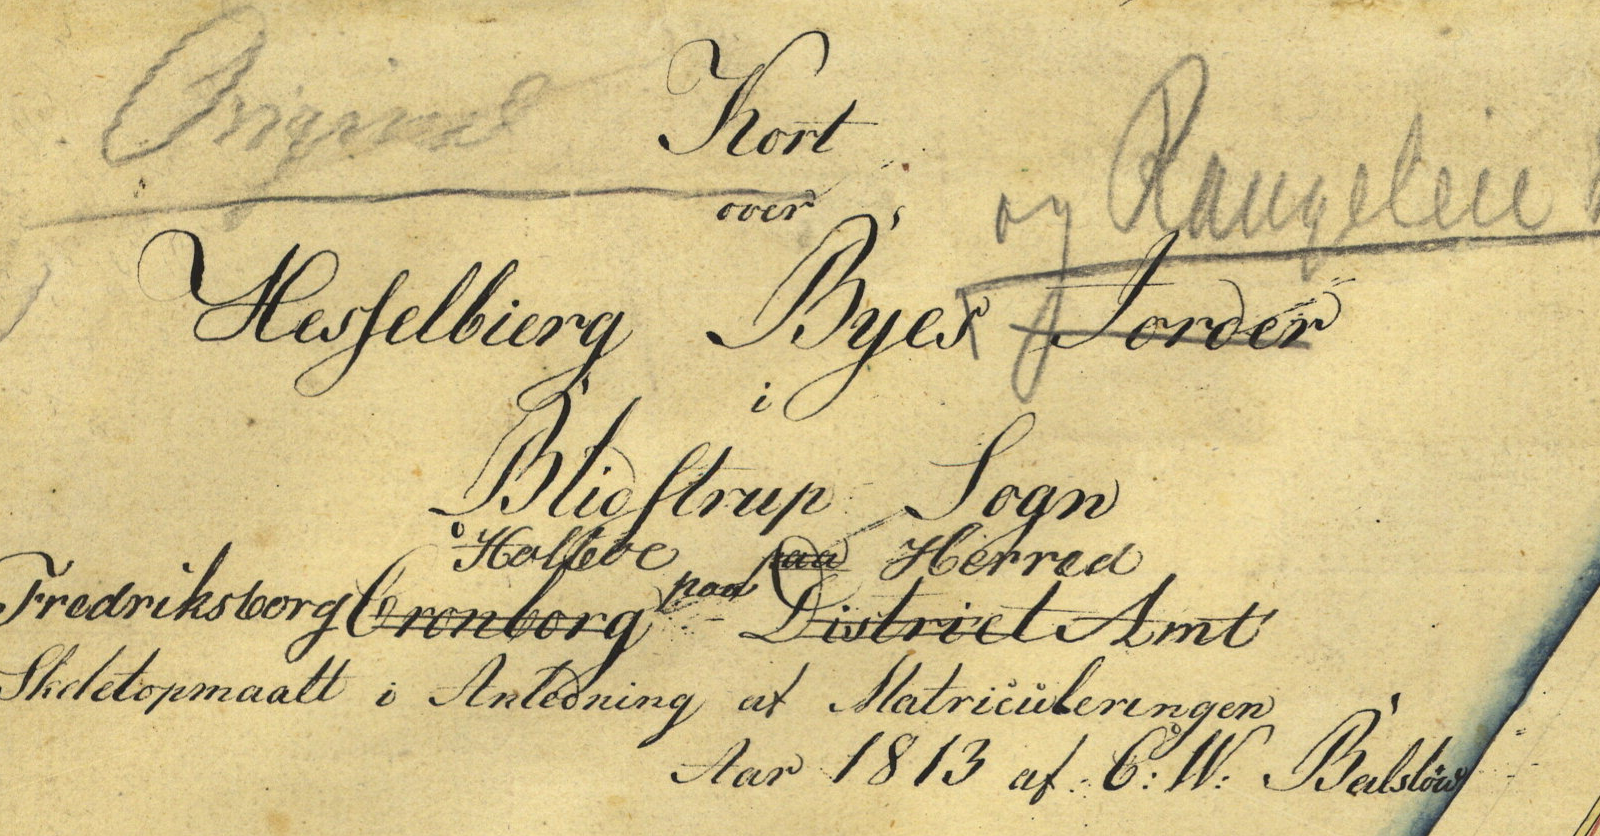 Original
Kort
over
og Rangeleie
Hesselbierg Byes Jorder
i
Blidstrup Sogn
Holbde paa Herred
Fredriksborg Cronborg paa District Amt
Skeletopmaalt i Anledning af Matriculeringen
Aar 1813 af C: W: Balslöw